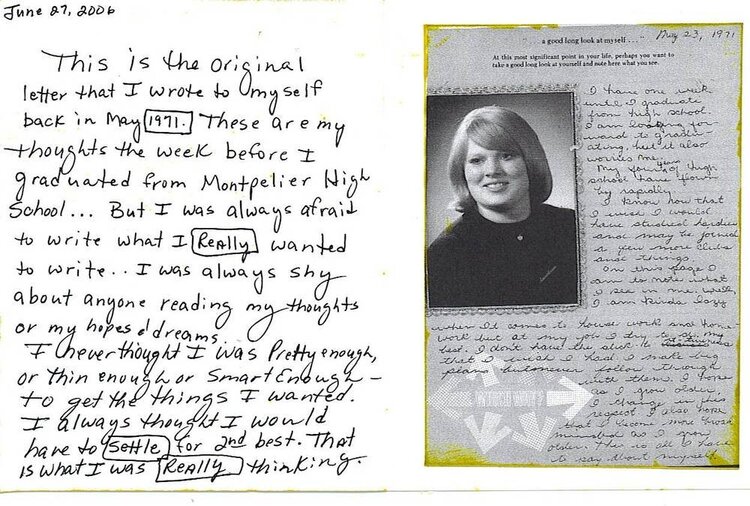 June 27, 2006
This is the original
letter that I wrote to myself
back in May 1971. These are my
thoughts the week before I
graduated from Montpelier High
School... But I was always afraid
to write what I Really wanted
to write.. I was always shy
about anyone reading my thoughts
or my hopes & dreams.
I never thought I was Pretty enough,
or thin enough or Smart Enough –
to get the things I wanted.
I always thought I would
have to settle for 2nd best. That
is what I was Really thinking.
a good long look at myself . . .
May 23, 1971
At this most significant point in your life, perhaps you want to
take a good long look at yourself and note here what you see.
I have one week
until I graduate
from high school.
I am looking for-
ward to gradu-
ating, but it also
worries me.
My years of high
school have flown
by rapidly.
I know now that
I wish I would
have studied harder
and maybe joined
a few more clubs
and things.
On this page I
am to note what
I see in me. Well,
I am kinda lazy
when it comes to house work and home
work but at my job I try to do my
best. I don't have the
that I wish I had. I make big
plans but never follow through
with them. I hope
as I grow older
I change in this
respect. I also hope
that I become more broad
minded as I grow
older. This is all I have
to say about myself.
WHICH WAY?